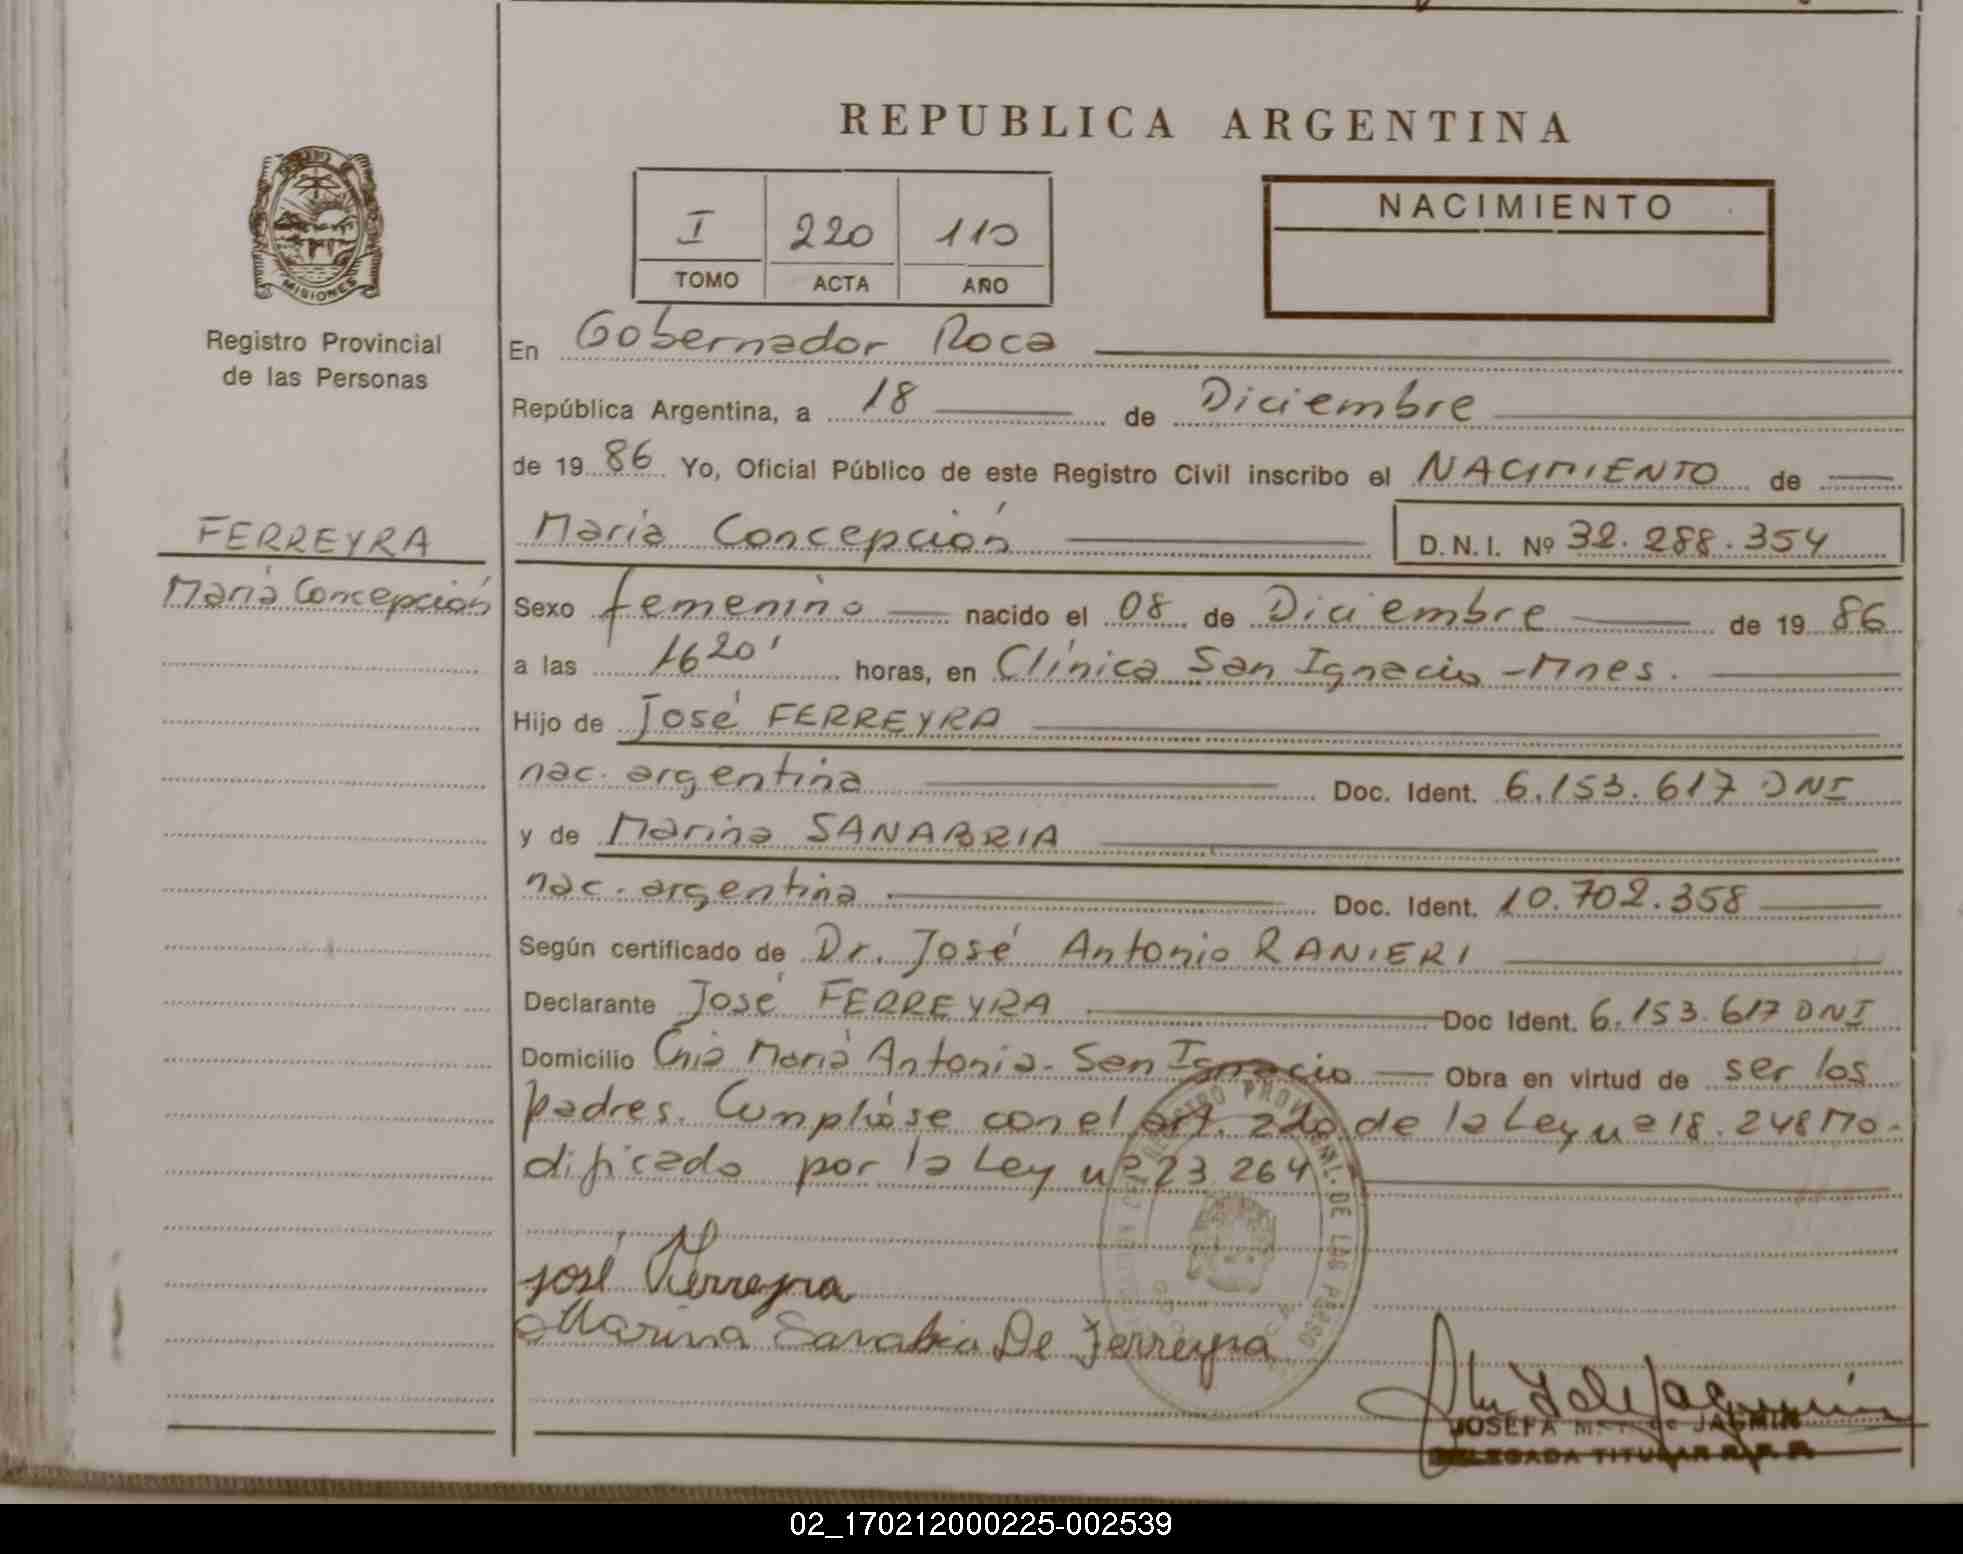 REPUBLICA ARGENTINA
I 220 110
TOMO ACTA AÑO
NACIMIENTO
MISIONES
Registro Provincial
de las Personas
FERREYRA
María Concepción
En Gobernador Roca
República Argentina, a 18 de Diciembre
de 19 86 Yo, Oficial Público de este Registro Civil inscribo el NACIMIENTO de
María Concepción D.N.I. Nº 32.288.354
Sexo femenino nacido el 08 de Diciembre de 19 86
a las 16 20' horas, en Clínica San Ignacio - Mnes.
Hijo de José FERREYRA
nac. argentina Doc. Ident. 6.153.617 DNI
y de Marina SANABRIA
nac. argentina Doc. Ident. 10.702.358
Según certificado de Dr. José Antonio RANIERI
Declarante José FERREYRA Doc Ident. 6.153.617 DNI
Domicilio Cnia María Antonia - San Ignacio Obra en virtud de ser los
padres. Cumplióse con el art. 2do de la Ley nº 18.248 Mo-
dificado por la Ley nº 23.264
José Ferreyra
Marina Sanabria De Ferreyra
JOSEFA M. DE JASMIN
DELEGADA TITULAR R.P.P.
02_170212000225-002539